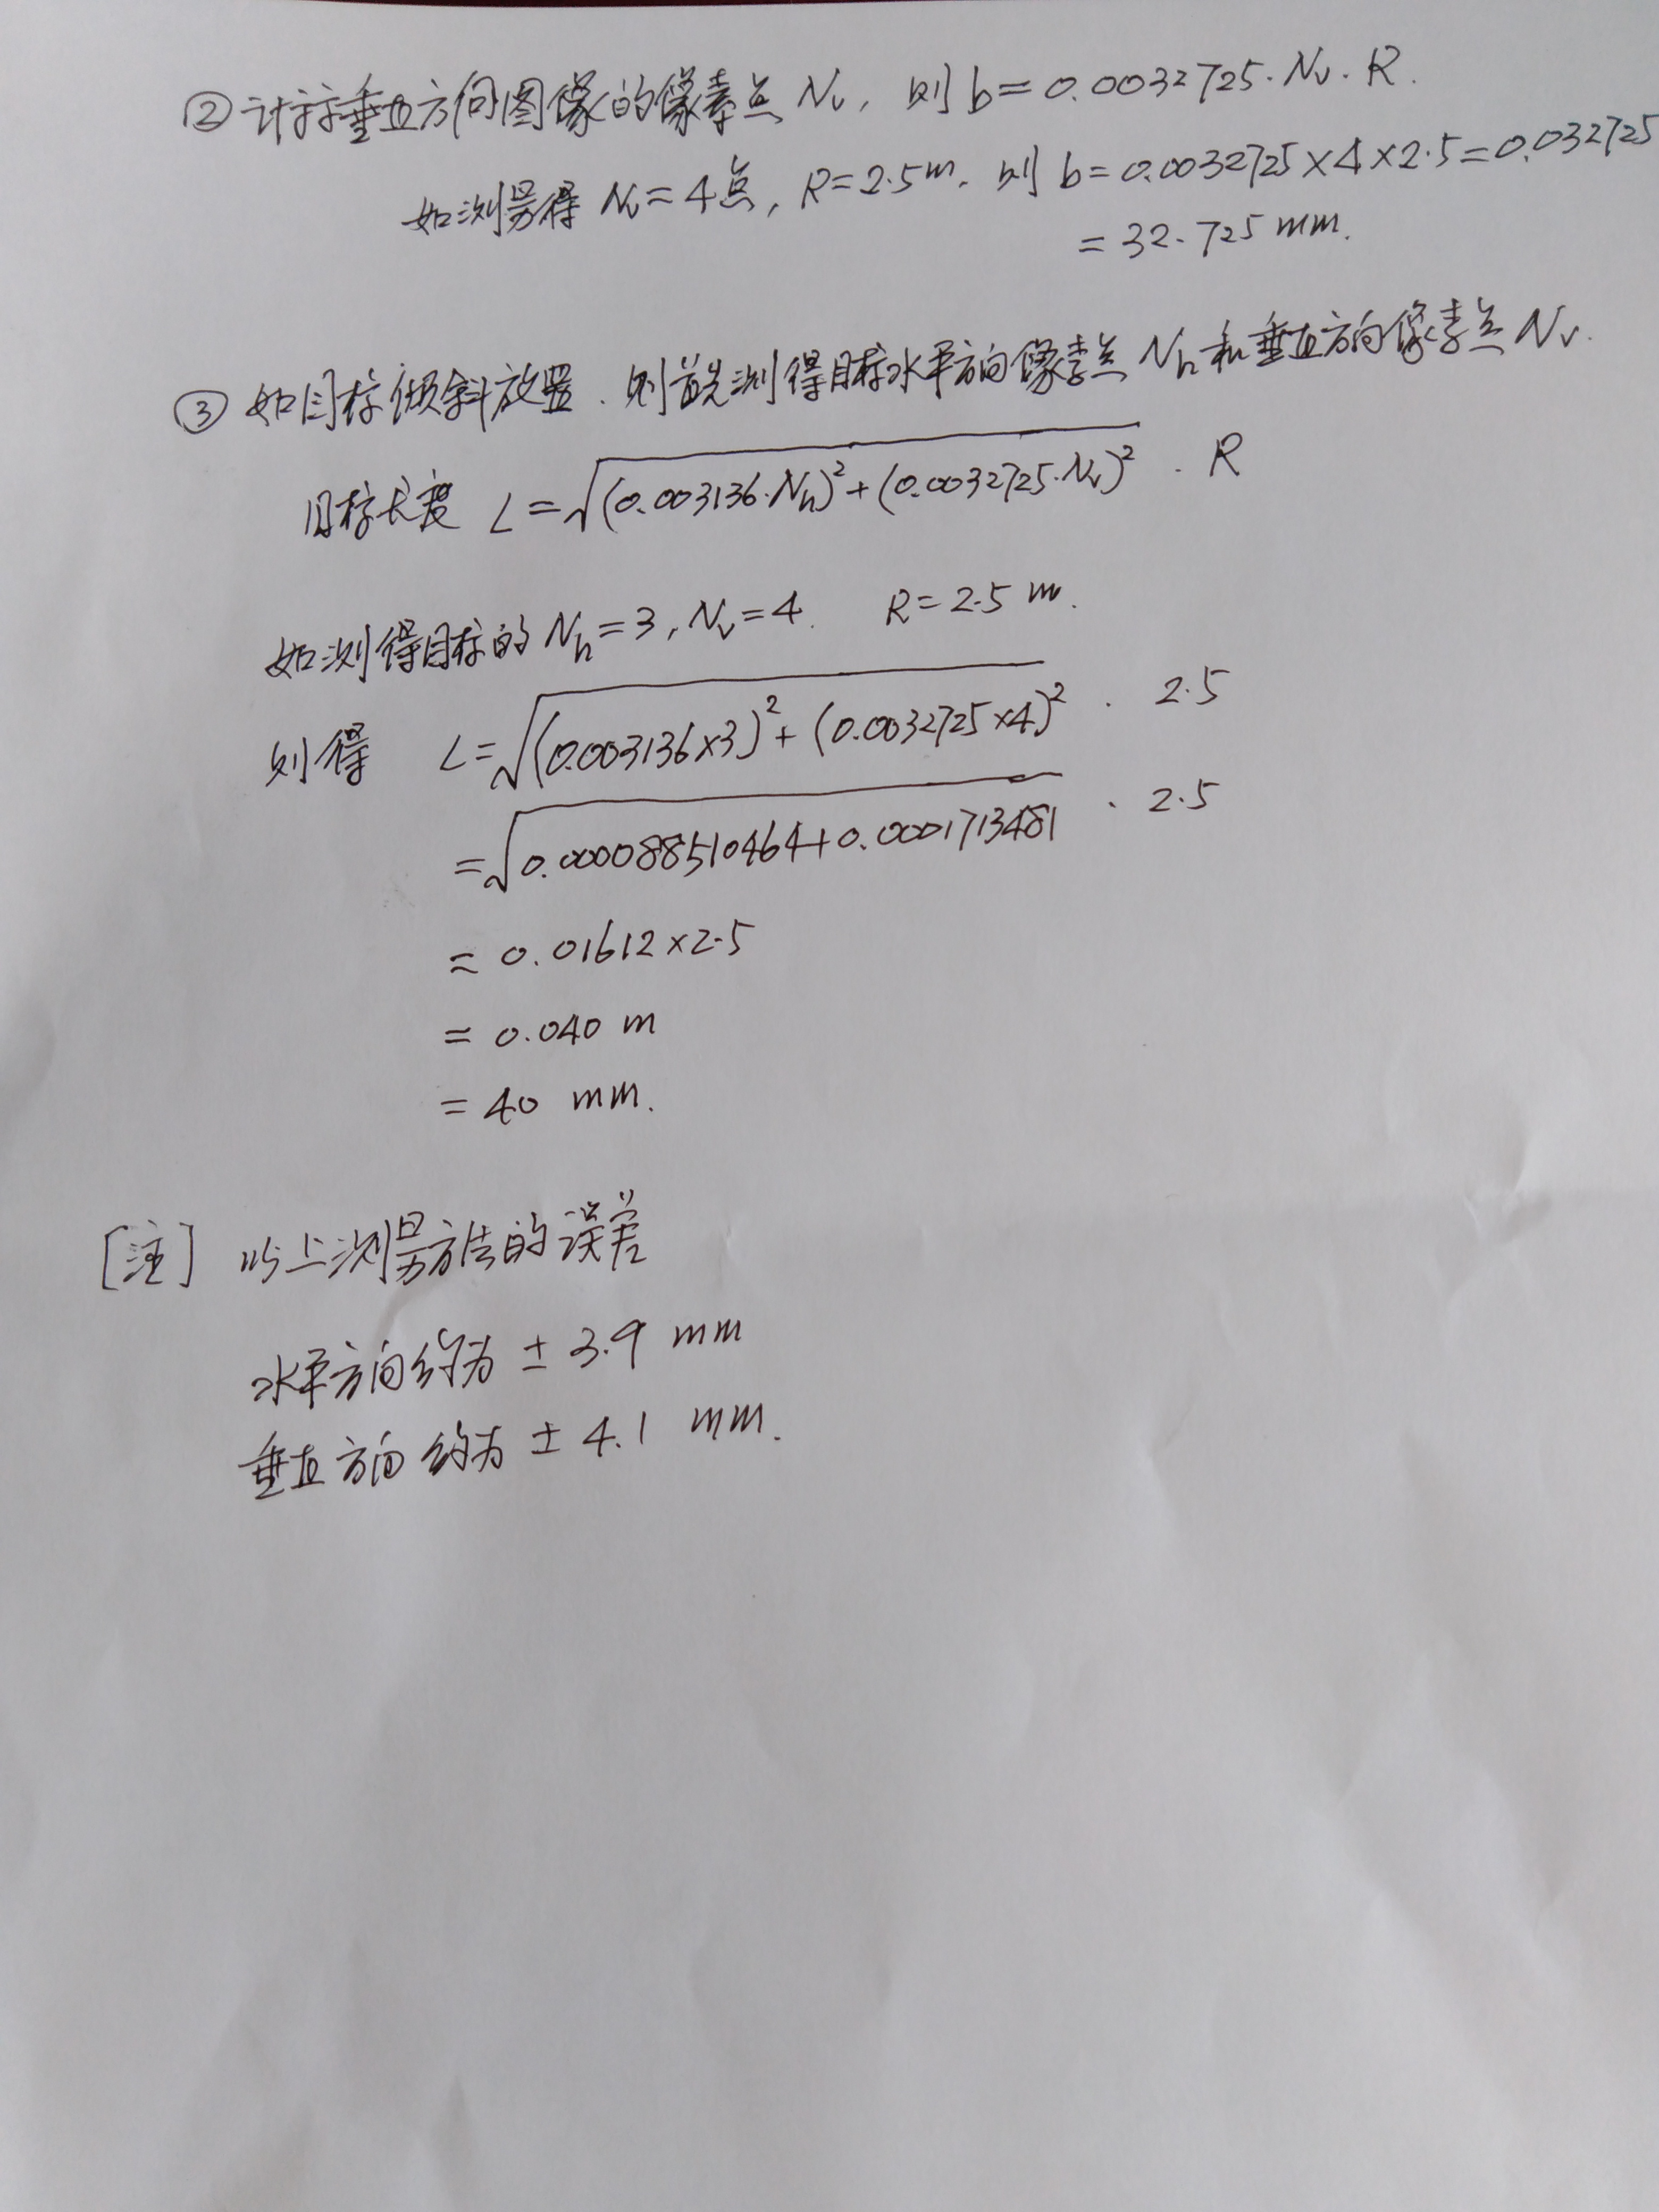 ② 计算垂直方向图像的像素点 Nv, 则 b=0.0032725·Nv·R.
如测量得 Nv=4点, R=2.5m, 则 b=0.0032725×4×2.5=0.032725
=32.725 mm.
③ 如目标倾斜放置. 则首先测得目标水平方向像素点 Nh和垂直方向像素点 Nv.
目标长度 L=√((0.003136·Nh)²+(0.0032725·Nv)²) · R
如测得目标的 Nh=3, Nv=4. R=2.5 m.
则得 L=√((0.003136×3)²+(0.0032725×4)²) · 2.5
=√(0.000088510464+0.0001713481) · 2.5
= 0.01612×2.5
= 0.040 m
= 40 mm.
[注] 以上测量方法的误差
水平方向约为 ± 3.9 mm
垂直方向约为 ± 4.1 mm.